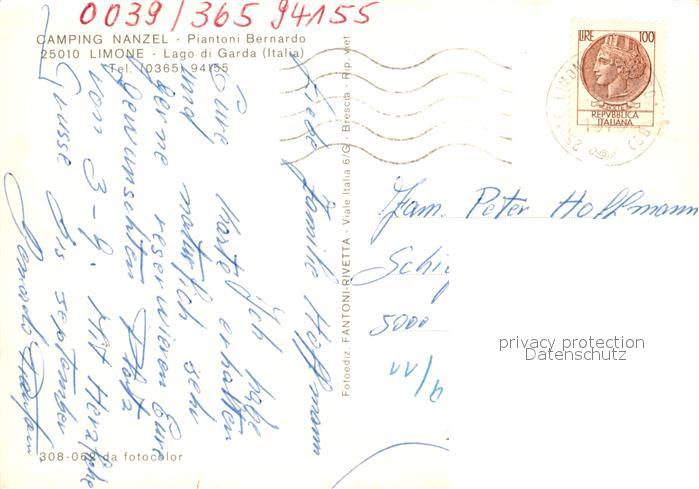 0039/365 94155
CAMPING NANZEL - Piantoni Bernardo
25010 LIMONE - Lago di Garda (Italia)
Tel. (0365) 94155
Liebe Familie Hoffmann
Ich habe
Eure Karte erhalten
und natürlich sehr
gerne reservieren Eur
gewunschten Platz
von 3-9. Mit Herzliche
Grüsse bis september
Bernardo Piantoni
308-069 da fotocolor
Fotoediz. FANTONI-RIVETTA - Viale Italia 6/G - Brescia - Rip. viet.
LIRE 100
POSTE
REPVBBLICA
ITALIANA
LIMON
Fam. Peter Hoffmann
Schi
5000
privacy protection
Datenschutz